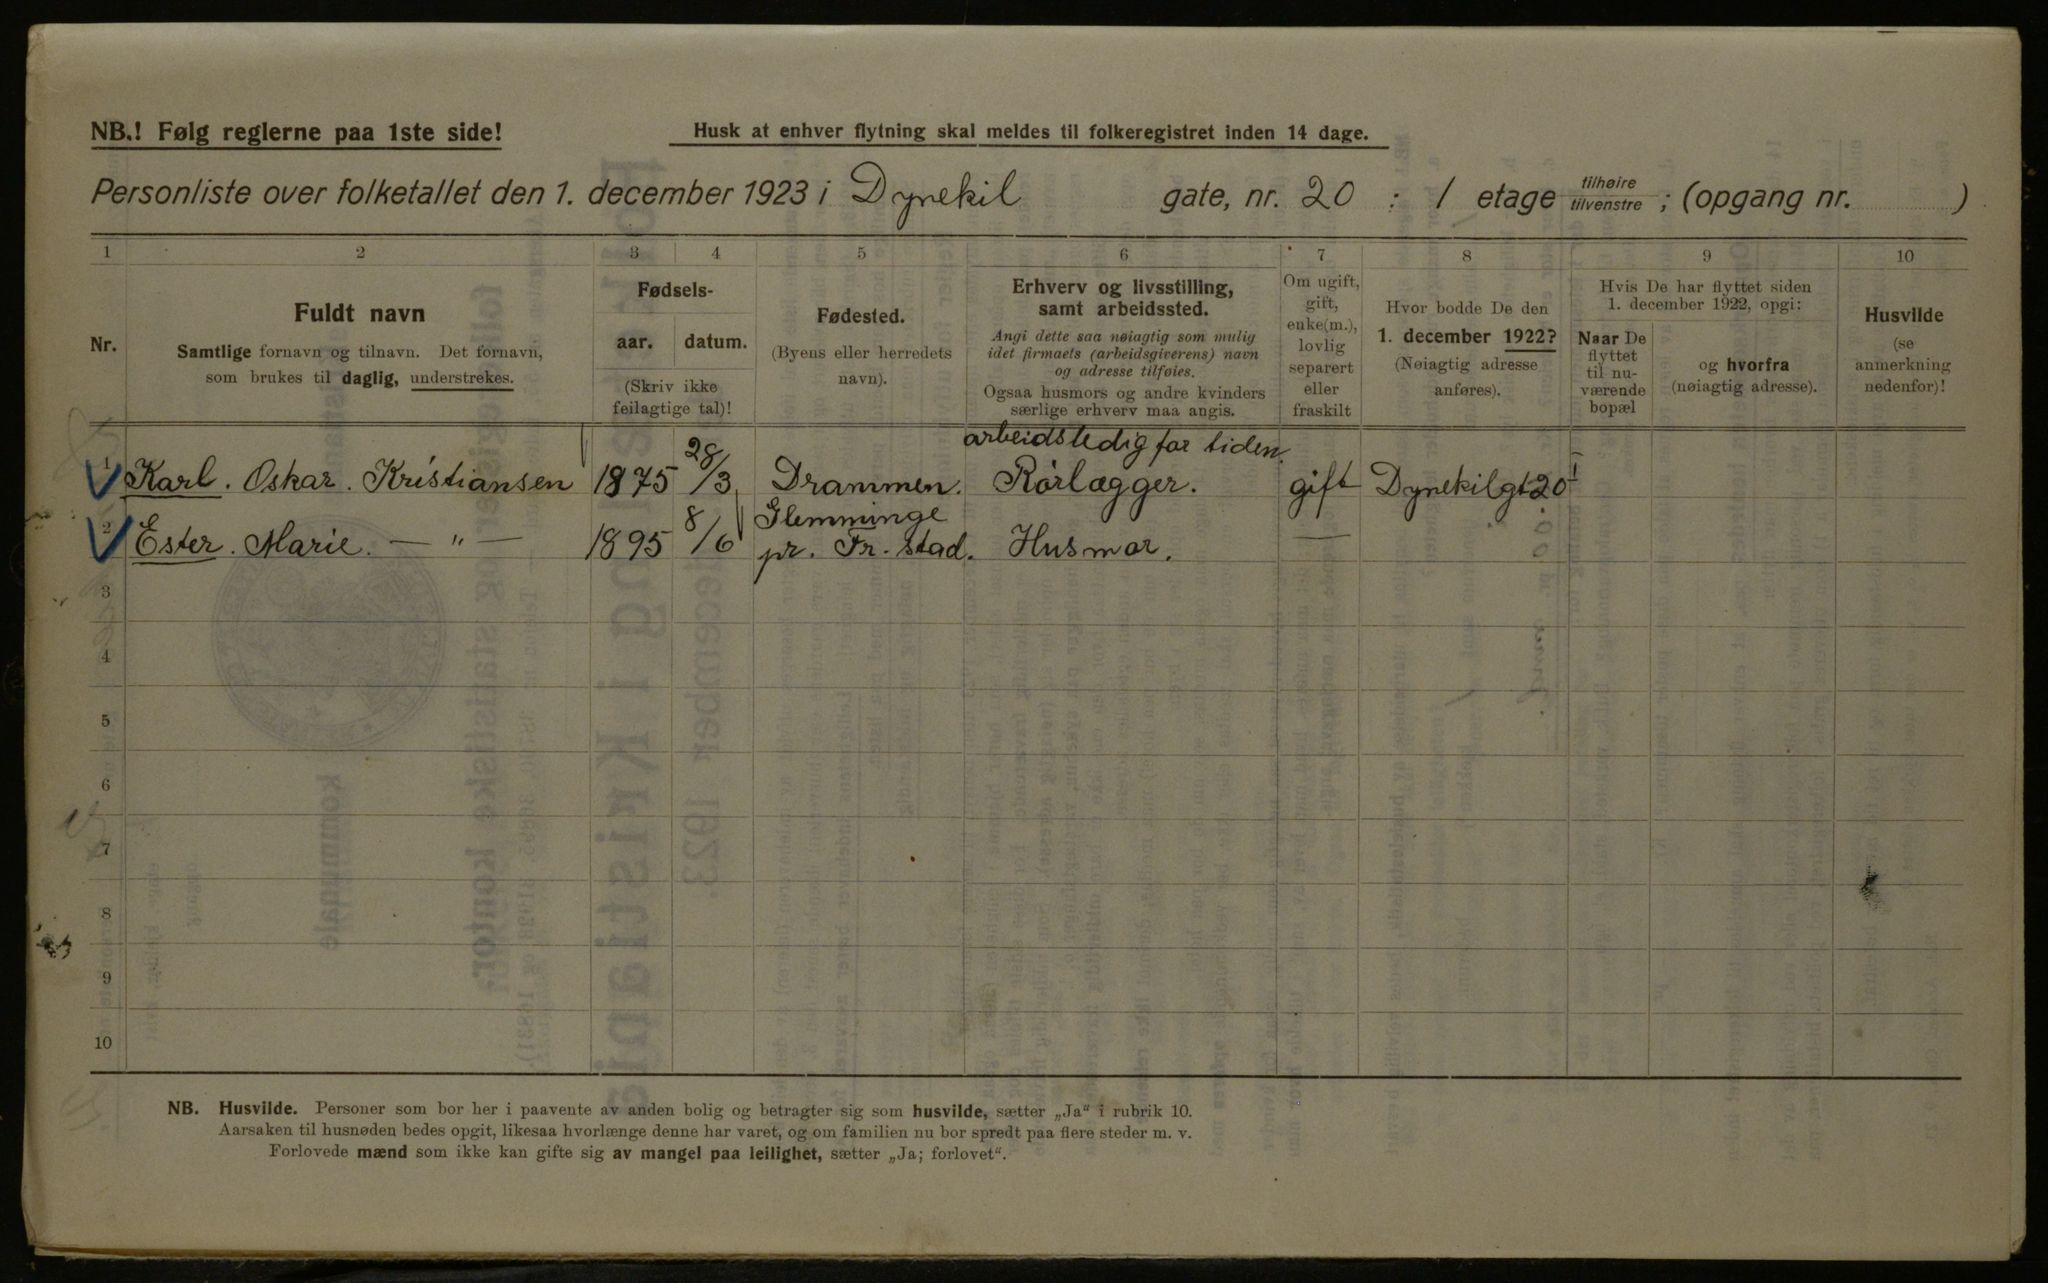 NB.! Følg reglerne paa 1ste side!
Husk at enhver flytning skal meldes til folkeregistret inden 14 dage.
Personliste over folketallet den 1. december 1923 i Dynekil gate, nr. 20 : 1 etage tilhøire tilvenstre ; (opgang nr. )
1 2 3 4 5 6 7 8 9 10
Nr.
Fuldt navn
Samtlige fornavn og tilnavn. Det fornavn,
som brukes til daglig, understrekes.
Fødsels-
aar. datum.
(Skriv ikke
feilagtige tal)!
Fødested.
(Byens eller herredets
navn).
Erhverv og livsstilling,
samt arbeidssted.
Angi dette saa nøiagtig som mulig
idet firmaets (arbeidsgiverens) navn
og adresse tilføies.
Ogsaa husmors og andre kvinders
særlige erhverv maa angis.
Om ugift,
gift,
enke(m.),
lovlig
separert
eller
fraskilt
Hvor bodde De den
1. december 1922?
(Nøiagtig adresse
anføres).
Hvis De har flyttet siden
1. december 1922, opgi:
Naar De
flyttet
til nu-
værende
bopæl
og hvorfra
(nøiagtig adresse).
Husvilde
(se
anmerkning
nedenfor)!
arbeidsledig for tiden.
1 Karl. Oskar. Kristiansen 1875 28/3 Drammen. Rørlægger. gift Dynekilgt 20 I
Glemminge
2 Ester. Marie. — „ — 1895 8/6 pr. Fr. stad. Husmor. —
3
4
5
6
7
8
9
10
NB. Husvilde. Personer som bor her i paavente av anden bolig og betragter sig som husvilde, sætter „Ja“ i rubrik 10.
Aarsaken til husnøden bedes opgit, likesaa hvorlænge denne har varet, og om familien nu bor spredt paa flere steder m. v.
Forlovede mænd som ikke kan gifte sig av mangel paa leilighet, sætter „Ja; forlovet“.